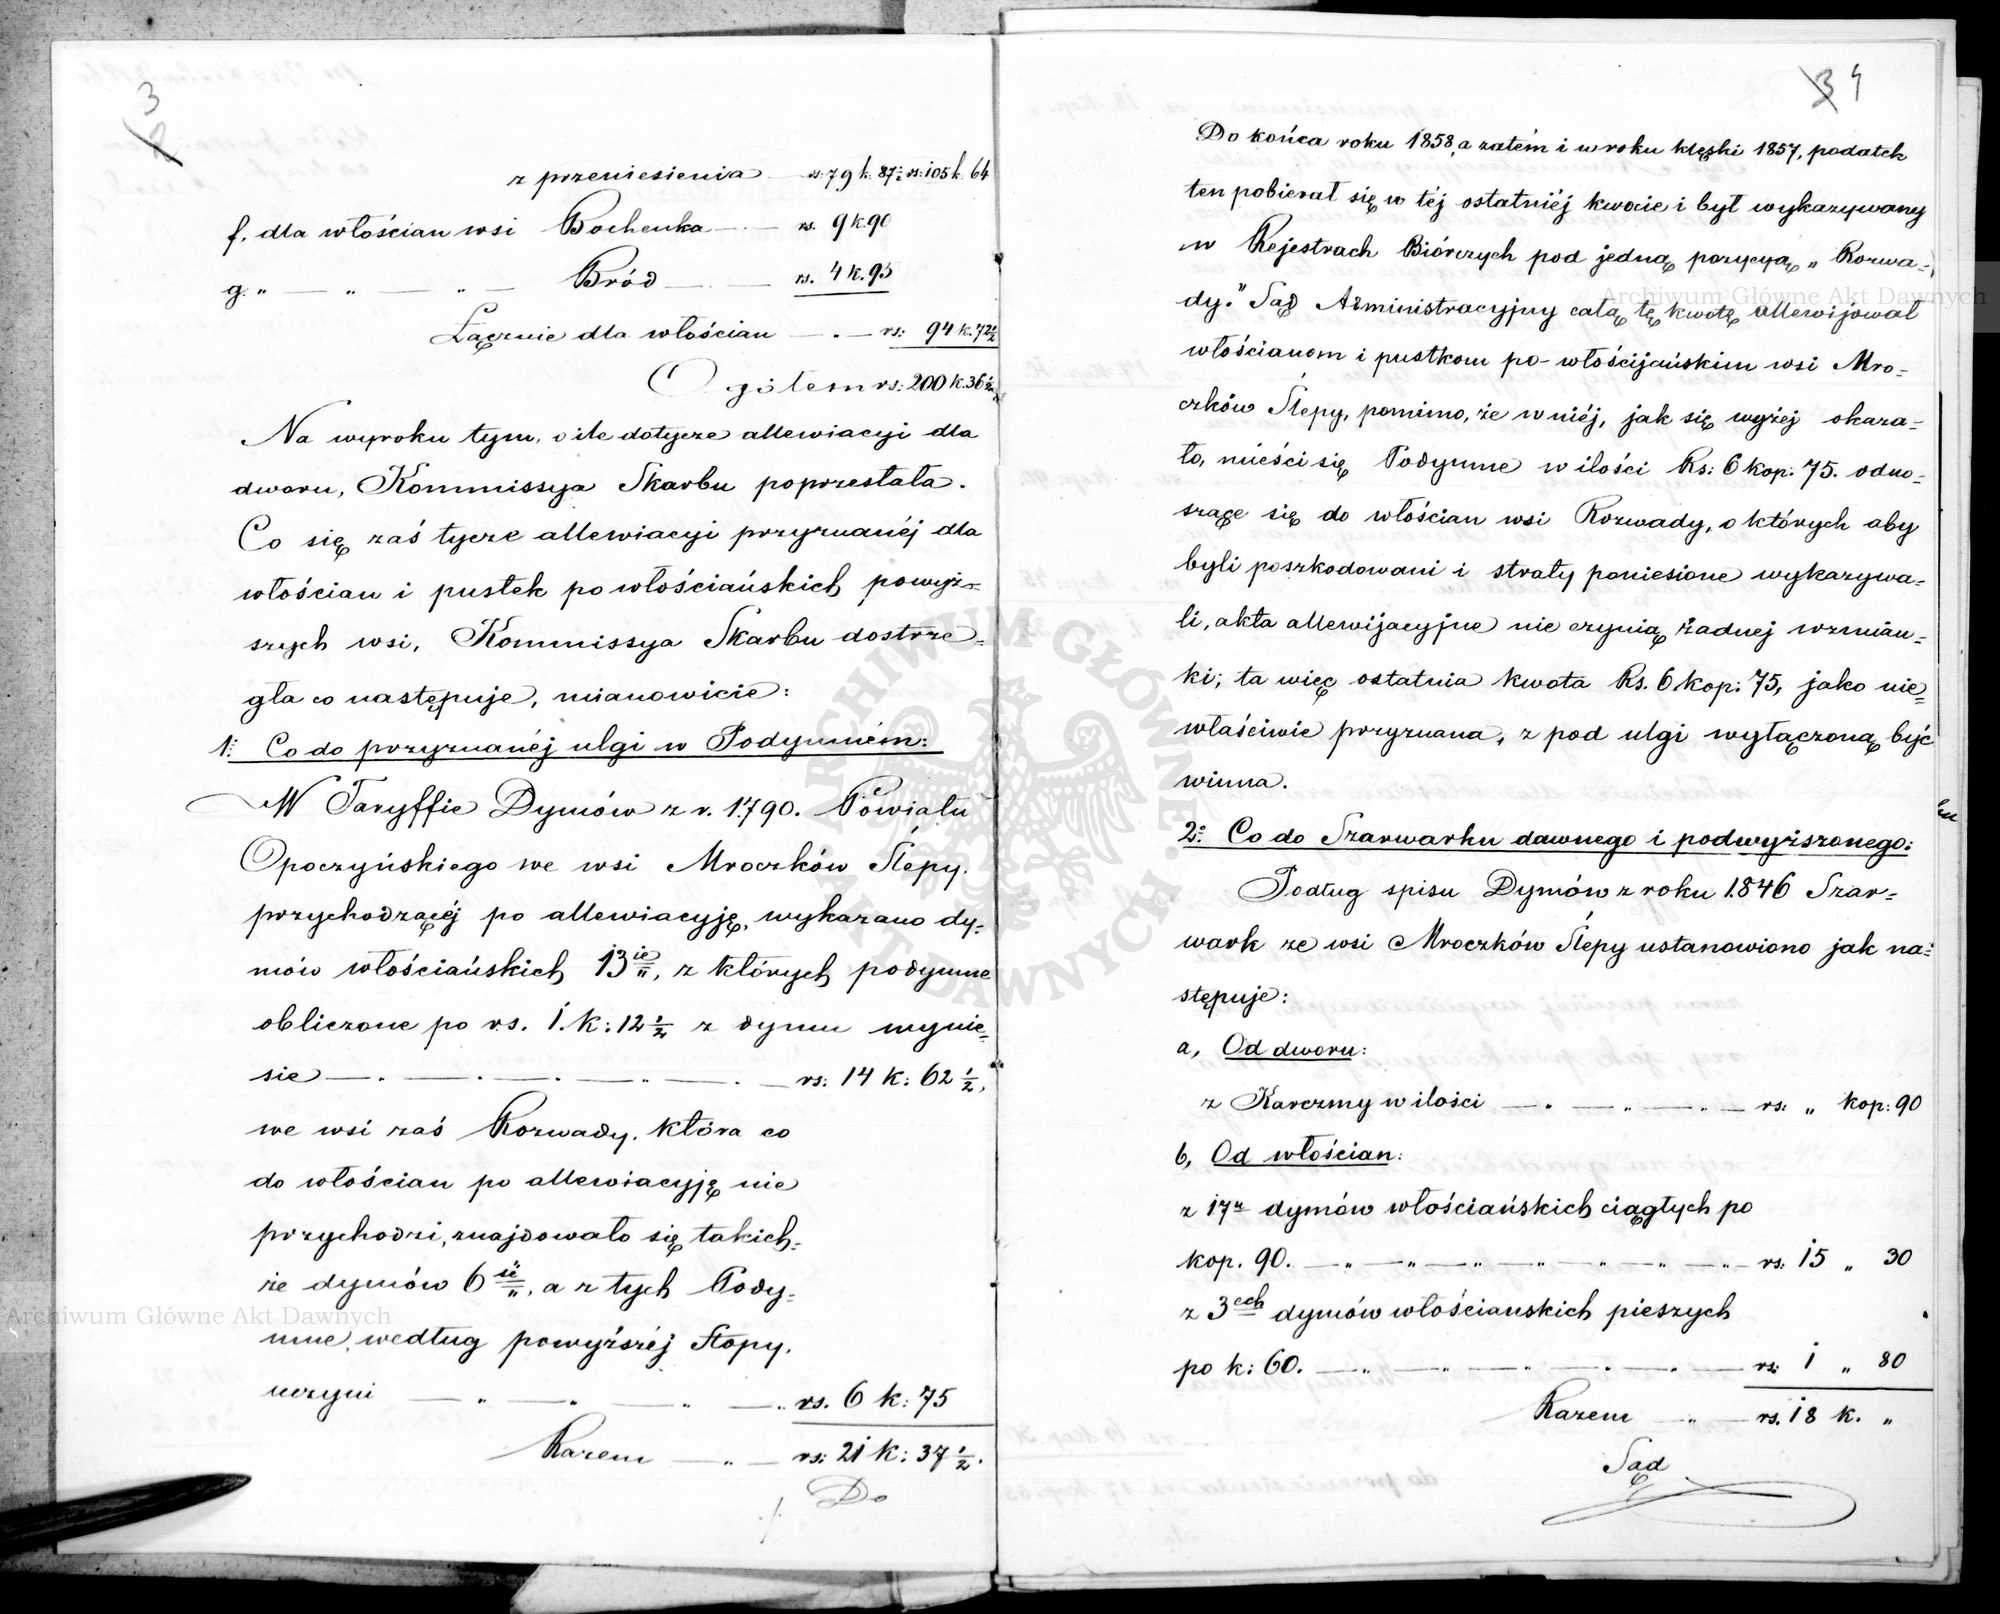 3
2
z przeniesienia — rs: 79 k. 87½ rs: 105 k. 64
f. dla włościan wsi Bochenka — · — rs. 9 k. 90
g. „ — „ — „ — Bród — — rs. 4 k. 95
Łącznie dla włościan — · — rs: 94 k. 72½
Ogółem rs: 200 k. 36½
Na wyroku tym, o ile dotycze allewiacyi dla
dworu, Kommissya Skarbu poprzestała.
Co się zaś tycze allewiacyi przyznanéj dla
włościan i pustek po włościańskich powyż=
szych wsi, Kommissya Skarbu dostrze=
gła co następuje, mianowicie:
1: Co do przyznanéj ulgi w Podymném:
W Taryffie Dymów z r. 1790. Powiatu
Opoczyńskiego we wsi Mroczków Ślepy,
przychodzącéj po allewiacyję, wykazano dy=
mów włościańskich 13ie, z których podymne
obliczone po rs. 1. k: 12½ z dymu wynie=
sie — · — · — „ — · — rs: 14 k: 62½,
we wsi zaś Rozwady, która co
do włościan po allewiacyję nie
przychodzi, znajdowało się takich=
że dymów 6ść, a z tych Pody=
mne, według powyższéj Stopy,
uczyni — „ — „ — „ — „ rs. 6 k: 75
Razem — „ — rs: 21 k: 37½.
./. Do
3 4
Do końca roku 1858, a zatém i w roku klęski 1857, podatek
ten pobierał się w téj ostatniéj kwocie i był wykazywany
w Rejestrach Biórczych pod jedną pozycyą „Rozwa=
dy." Sąd Administracyjny całą tę kwotę allewijował
włościanom i pustkom po-włościjańskim wsi Mro=
czków Ślepy, pomimo, że w niéj, jak się wyżej okaza=
ło, mieści się Podymne w ilości Rs: 6 kop: 75. odno=
szące się do włościan wsi Rozwady, o których aby
byli poszkodowani i straty poniesione wykazywa=
li, akta allewijacyjne nie czynią żadnej wzmian=
ki; ta więc ostatnia kwota Rs. 6 kop: 75, jako nie=
właściwie przyznana, z pod ulgi wyłączoną być
winna.
2: Co do Szarwarku dawnego i podwyższonego:
Podług spisu Dymów z roku 1846 Szar=
wark ze wsi Mroczków Ślepy ustanowiono jak na=
stępuje:
a, Od dworu:
z Karczmy w ilości — „ — „ — „ — rs: „ kop: 90
b, Od włościan:
z 17u dymów włościańskich ciągłych po
kop. 90. — „ — „ — „ — „ — „ — „ — „ — rs: 15 „ 30
z 3ech dymów włościanskich pieszych
po k: 60. — „ — „ — „ — „ — „ — rs: 1 „ 80
Razem — „ — rs. 18 k. „
Sąd
Archiwum Główne Akt Dawnych
Archiwum Główne Akt Dawnych
ARCHIWUM GŁÓWNE AKT DAWNYCH